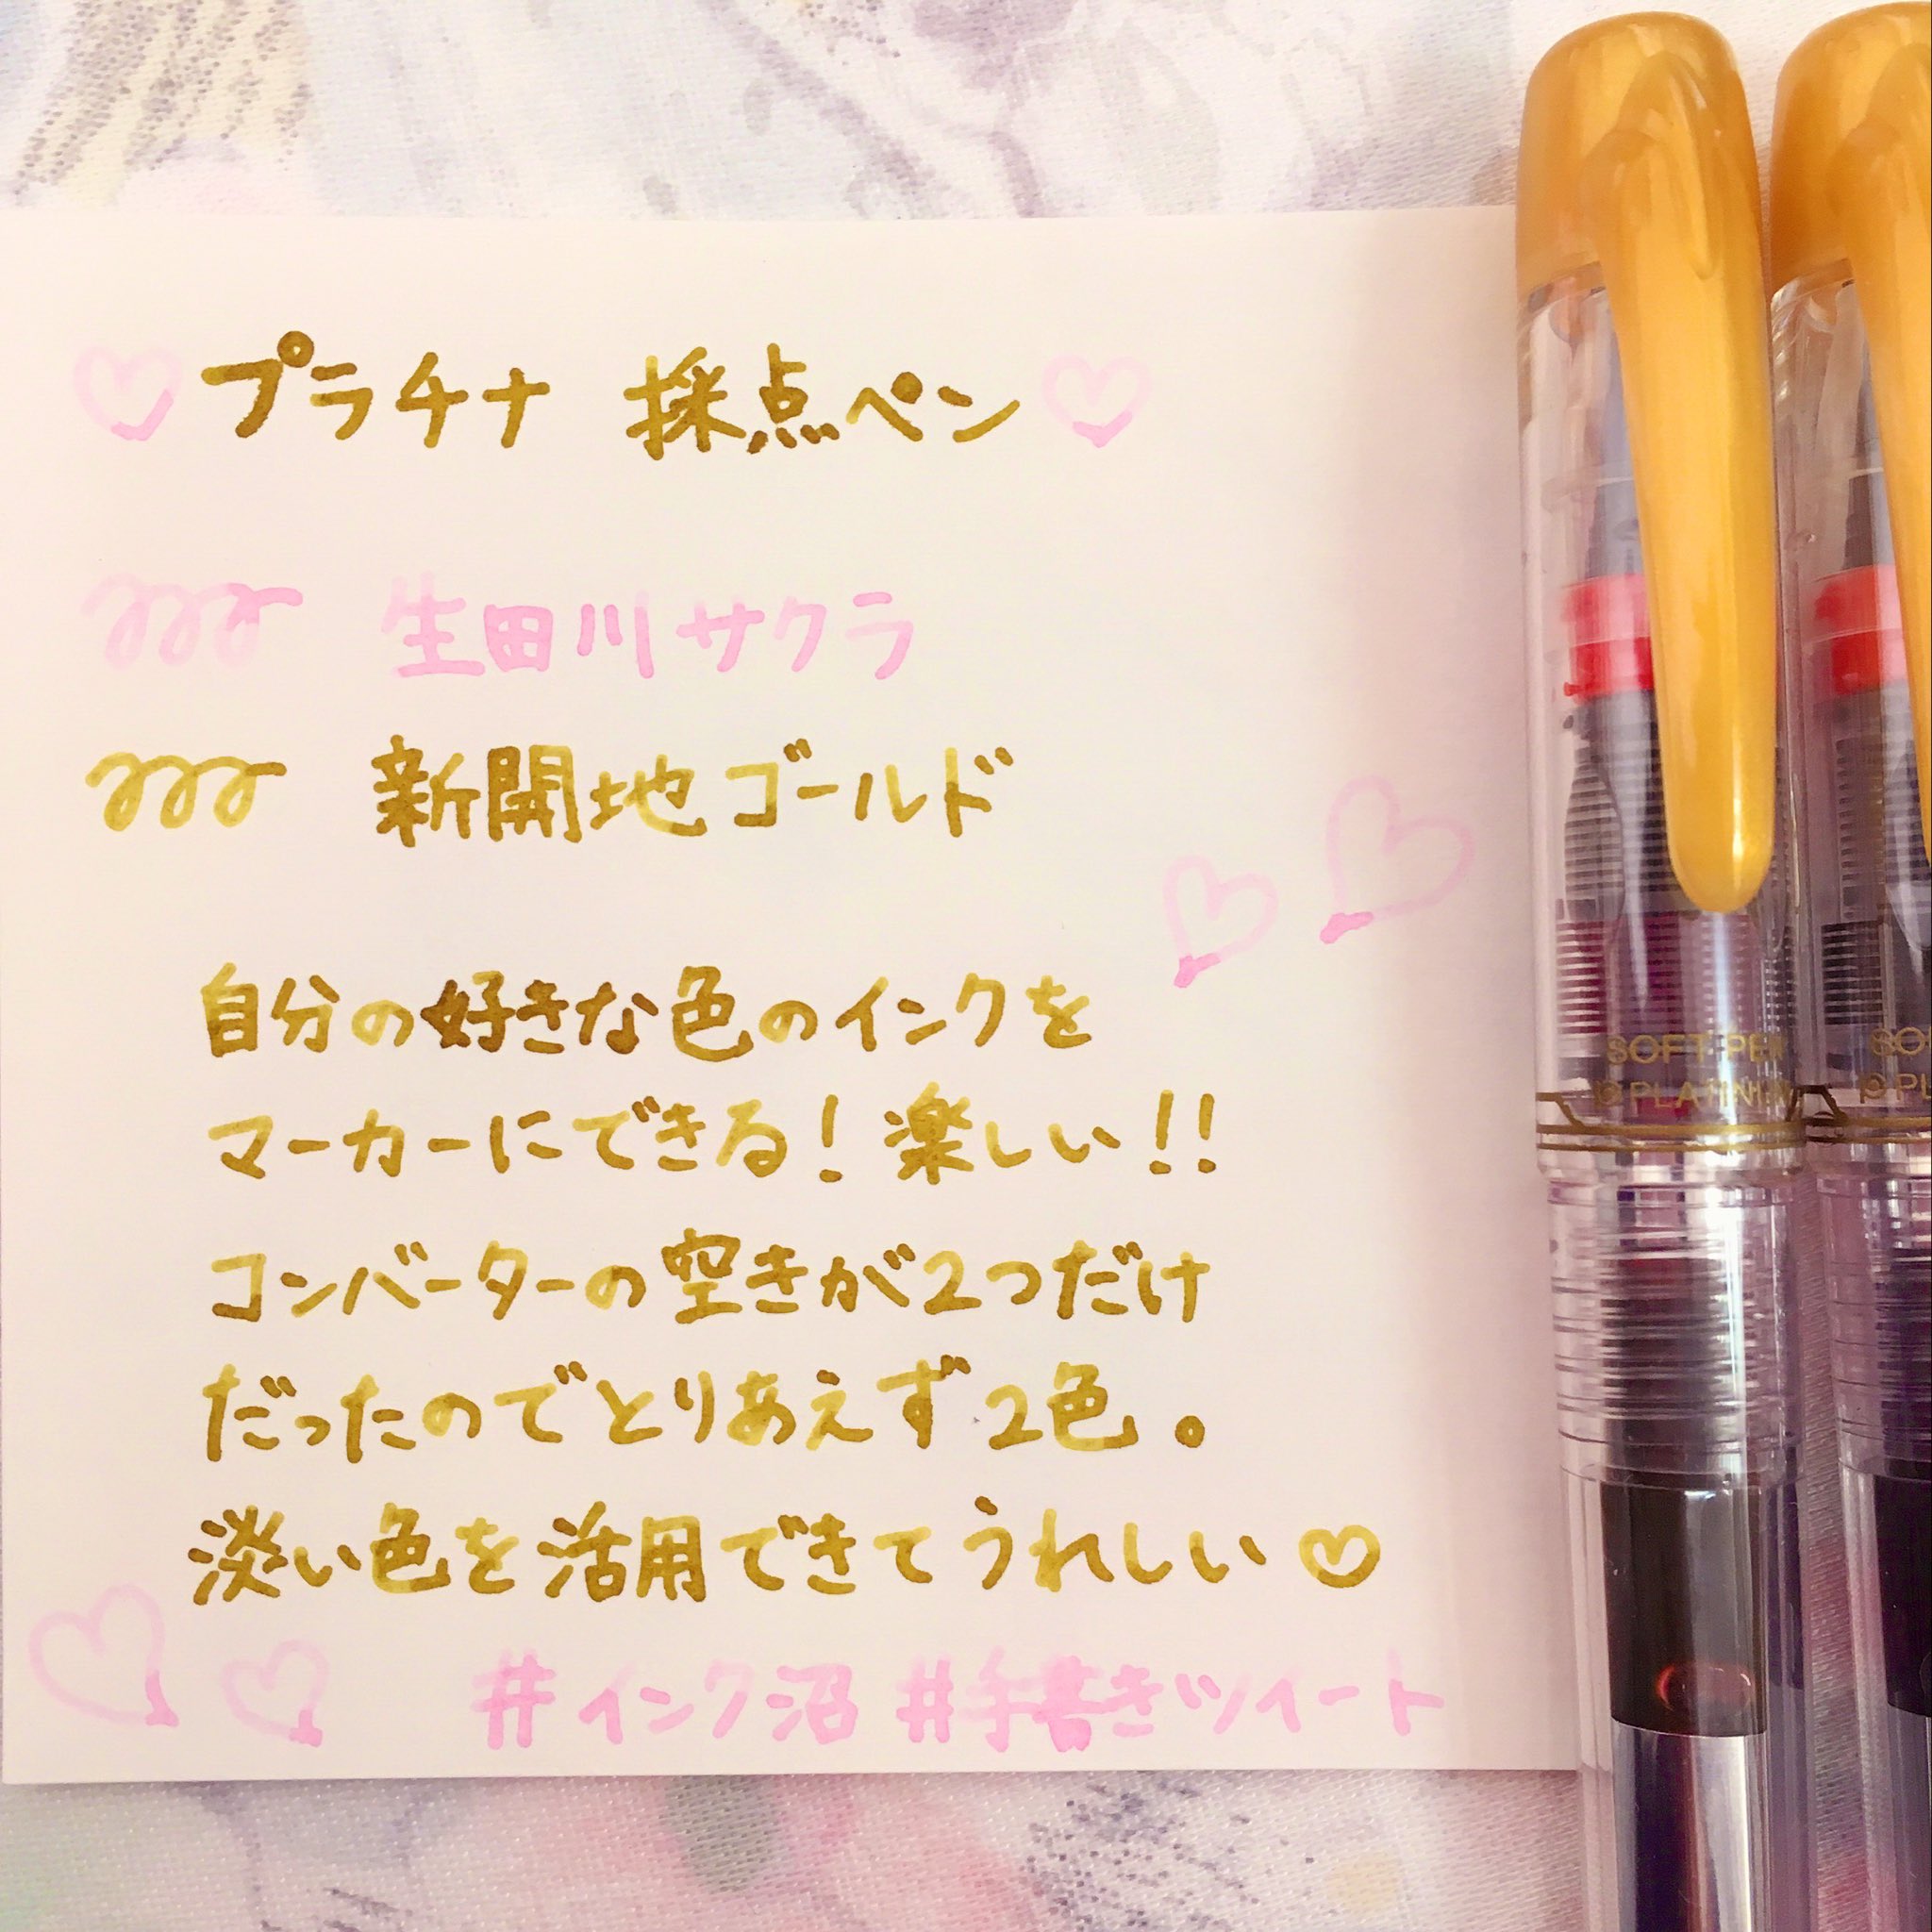 ♡プラチナ 採点ペン♡
生田川サクラ
新開地ゴールド
自分の好きな色のインクを
マーカーにできる！楽しい!!
コンバーターの空きが2つだけ
だったのでとりあえず2色。
淡い色を活用できてうれしい♡
#インク沼 #手書きツイート
SOFT PEN
PLATINUM
SO
PL